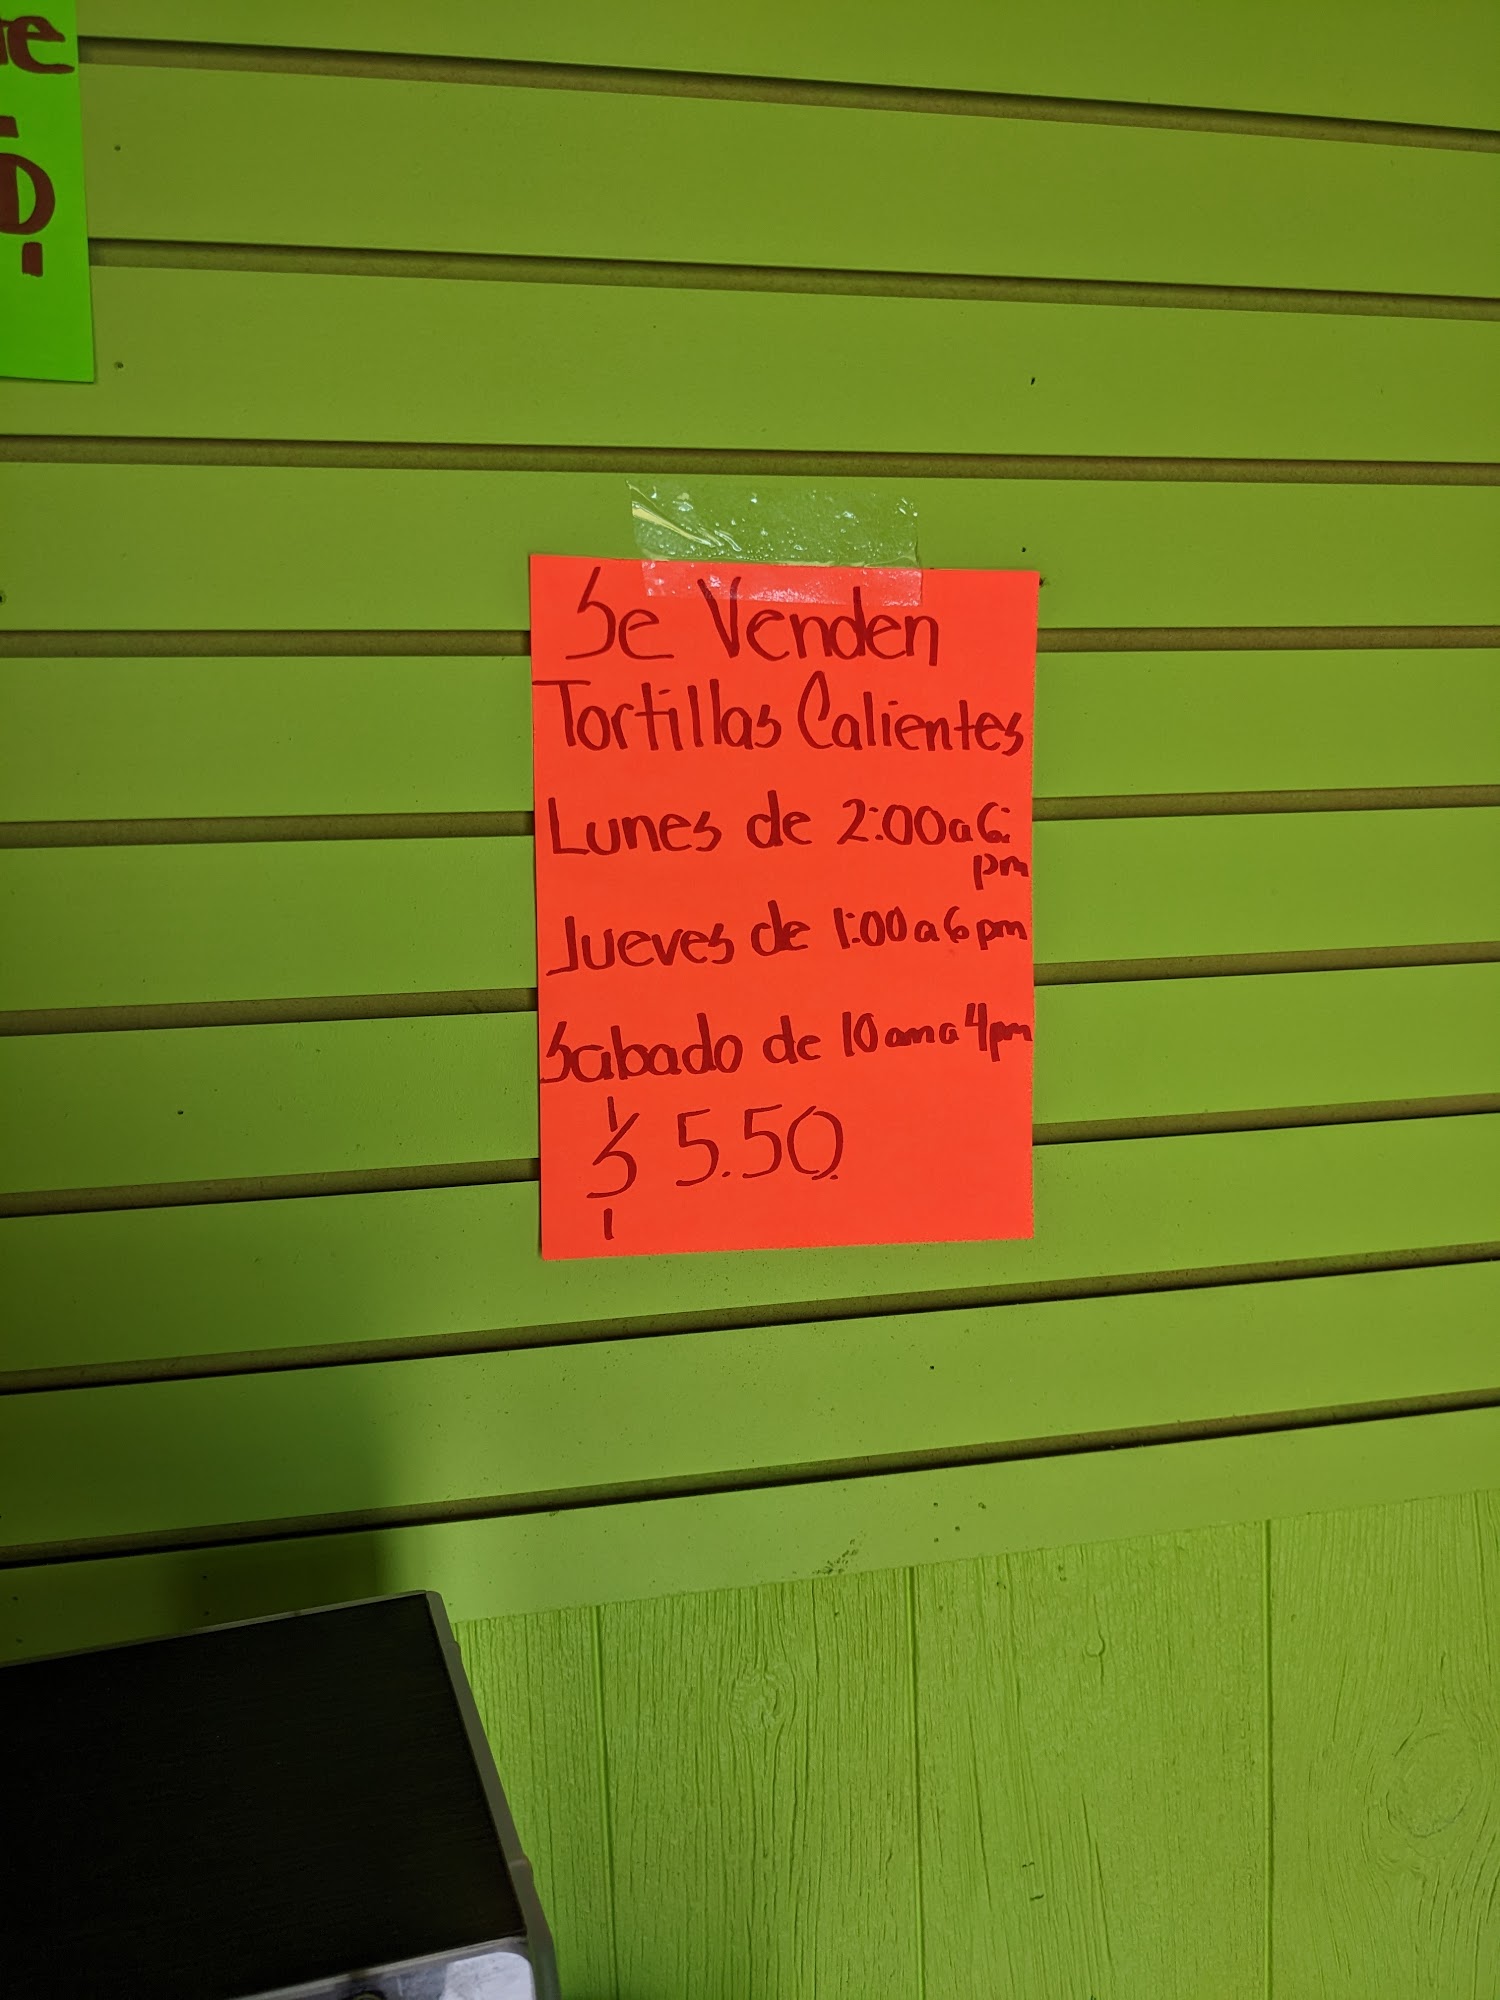 Se Venden
Tortillas Calientes
Lunes de 2:00 a 6:
pm
Jueves de 1:00 a 6 pm
Sabado de 10 am a 4 pm
$ 5.50